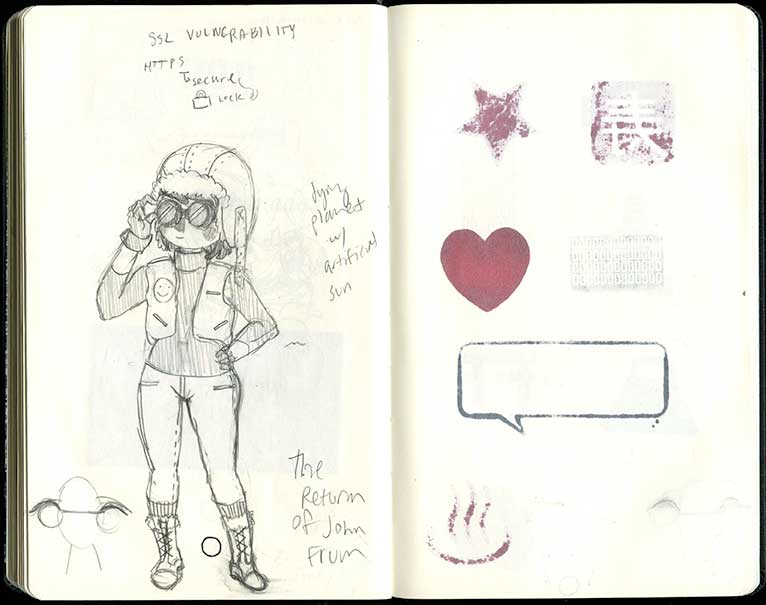 SSL VULNERABILITY
HTTPS
securely
LOCK
dying
planet
w/
artificial
sun
The
Return
of John
Frum